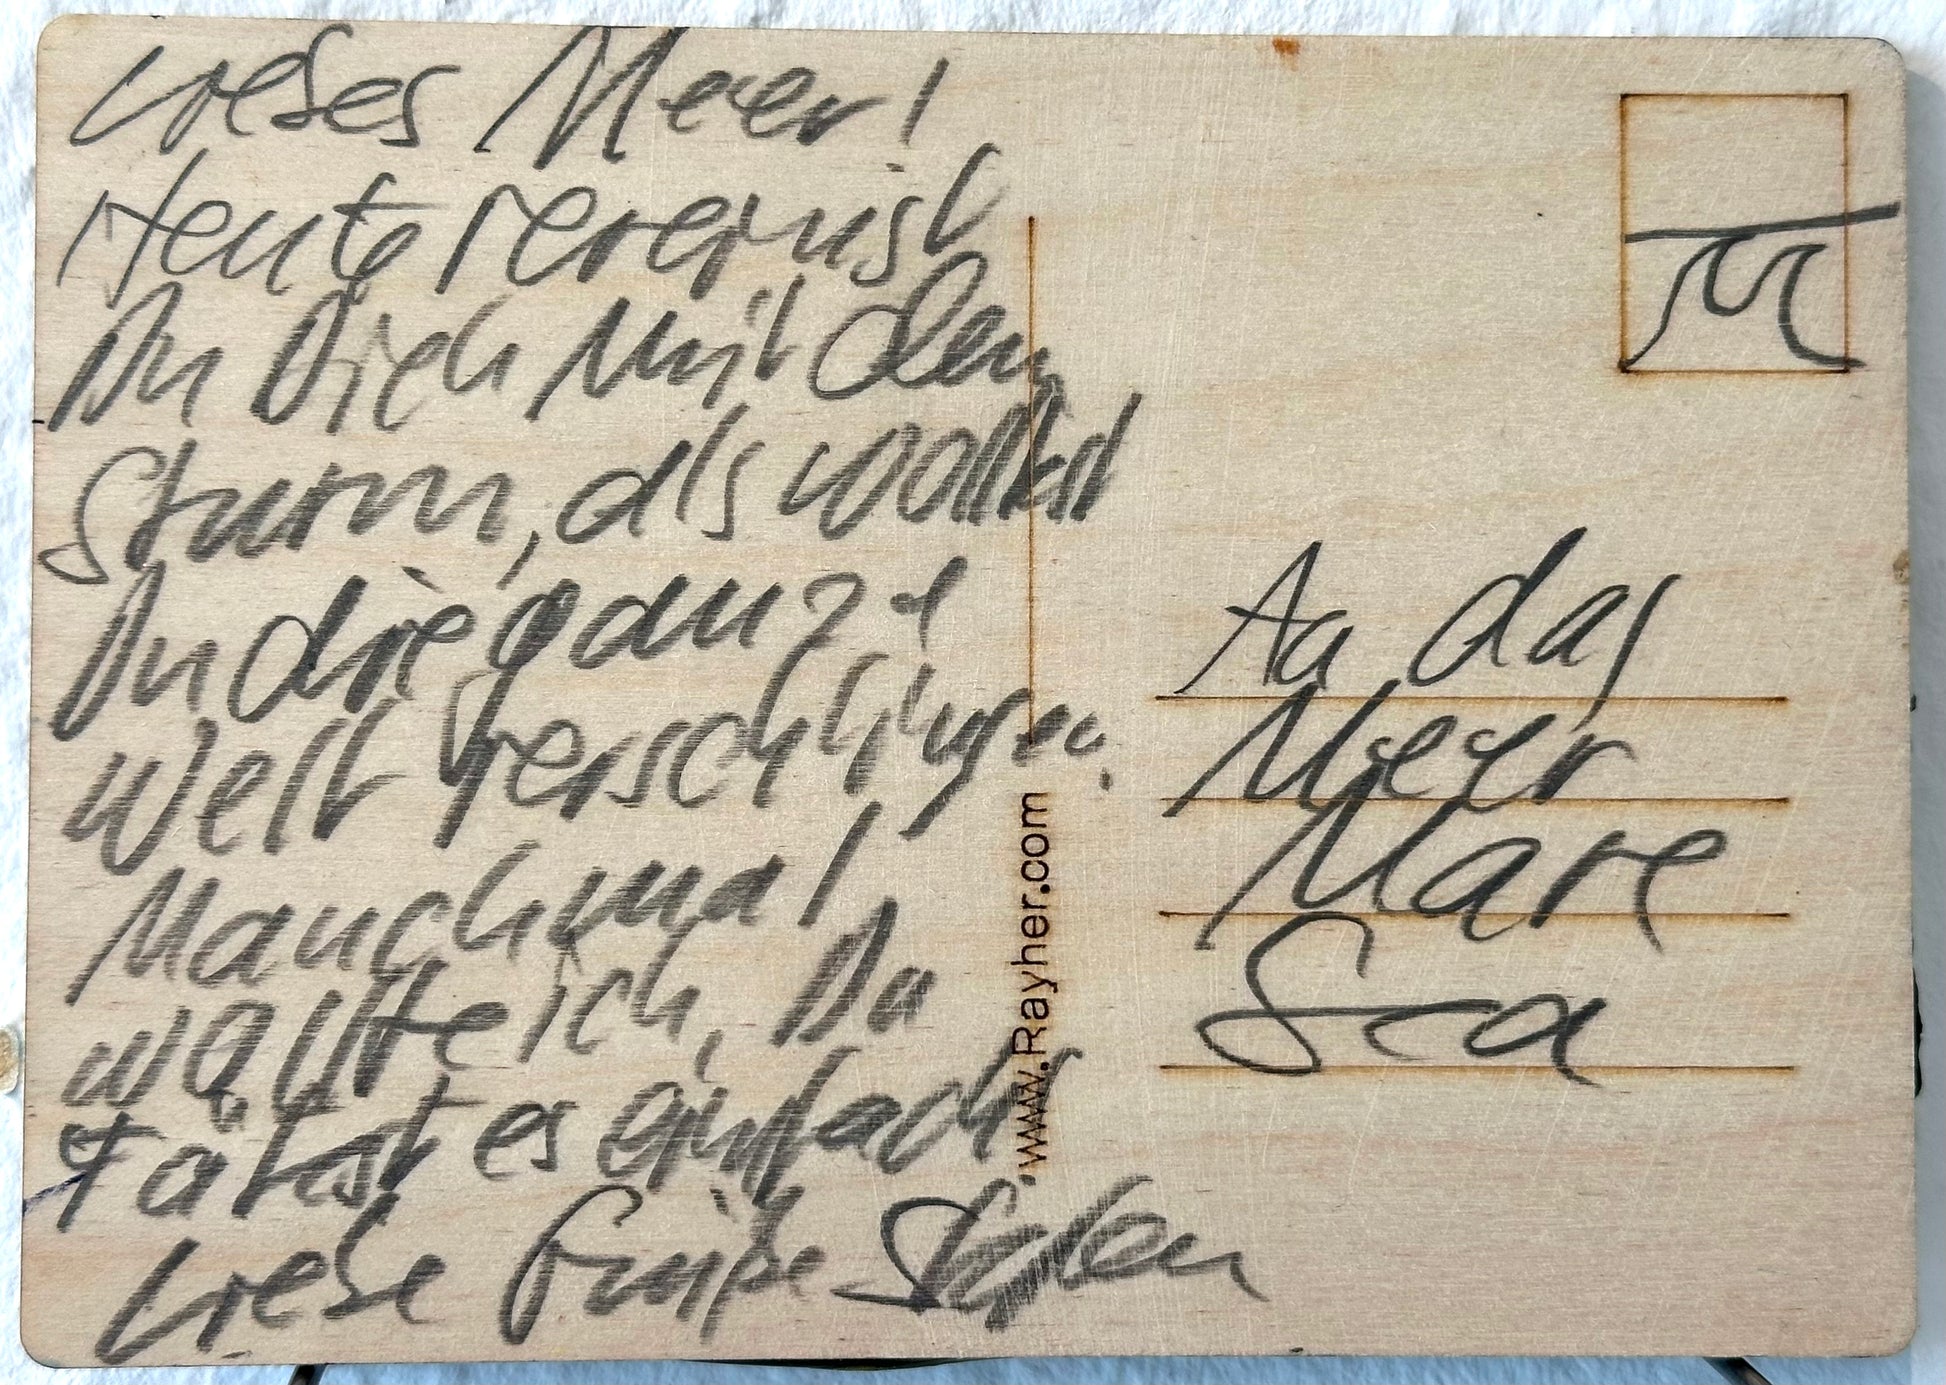 Liebes Meer!
Heute vereinist
Du Dich mit dem
Sturm, als wolltest
Du die ganze
Welt verschlingen.
Manchmal
wollte ich, Du
tätest es einfach
Liebe Grüße Stefan
www.Rayher.com
An das
Meer
Mare
Sea